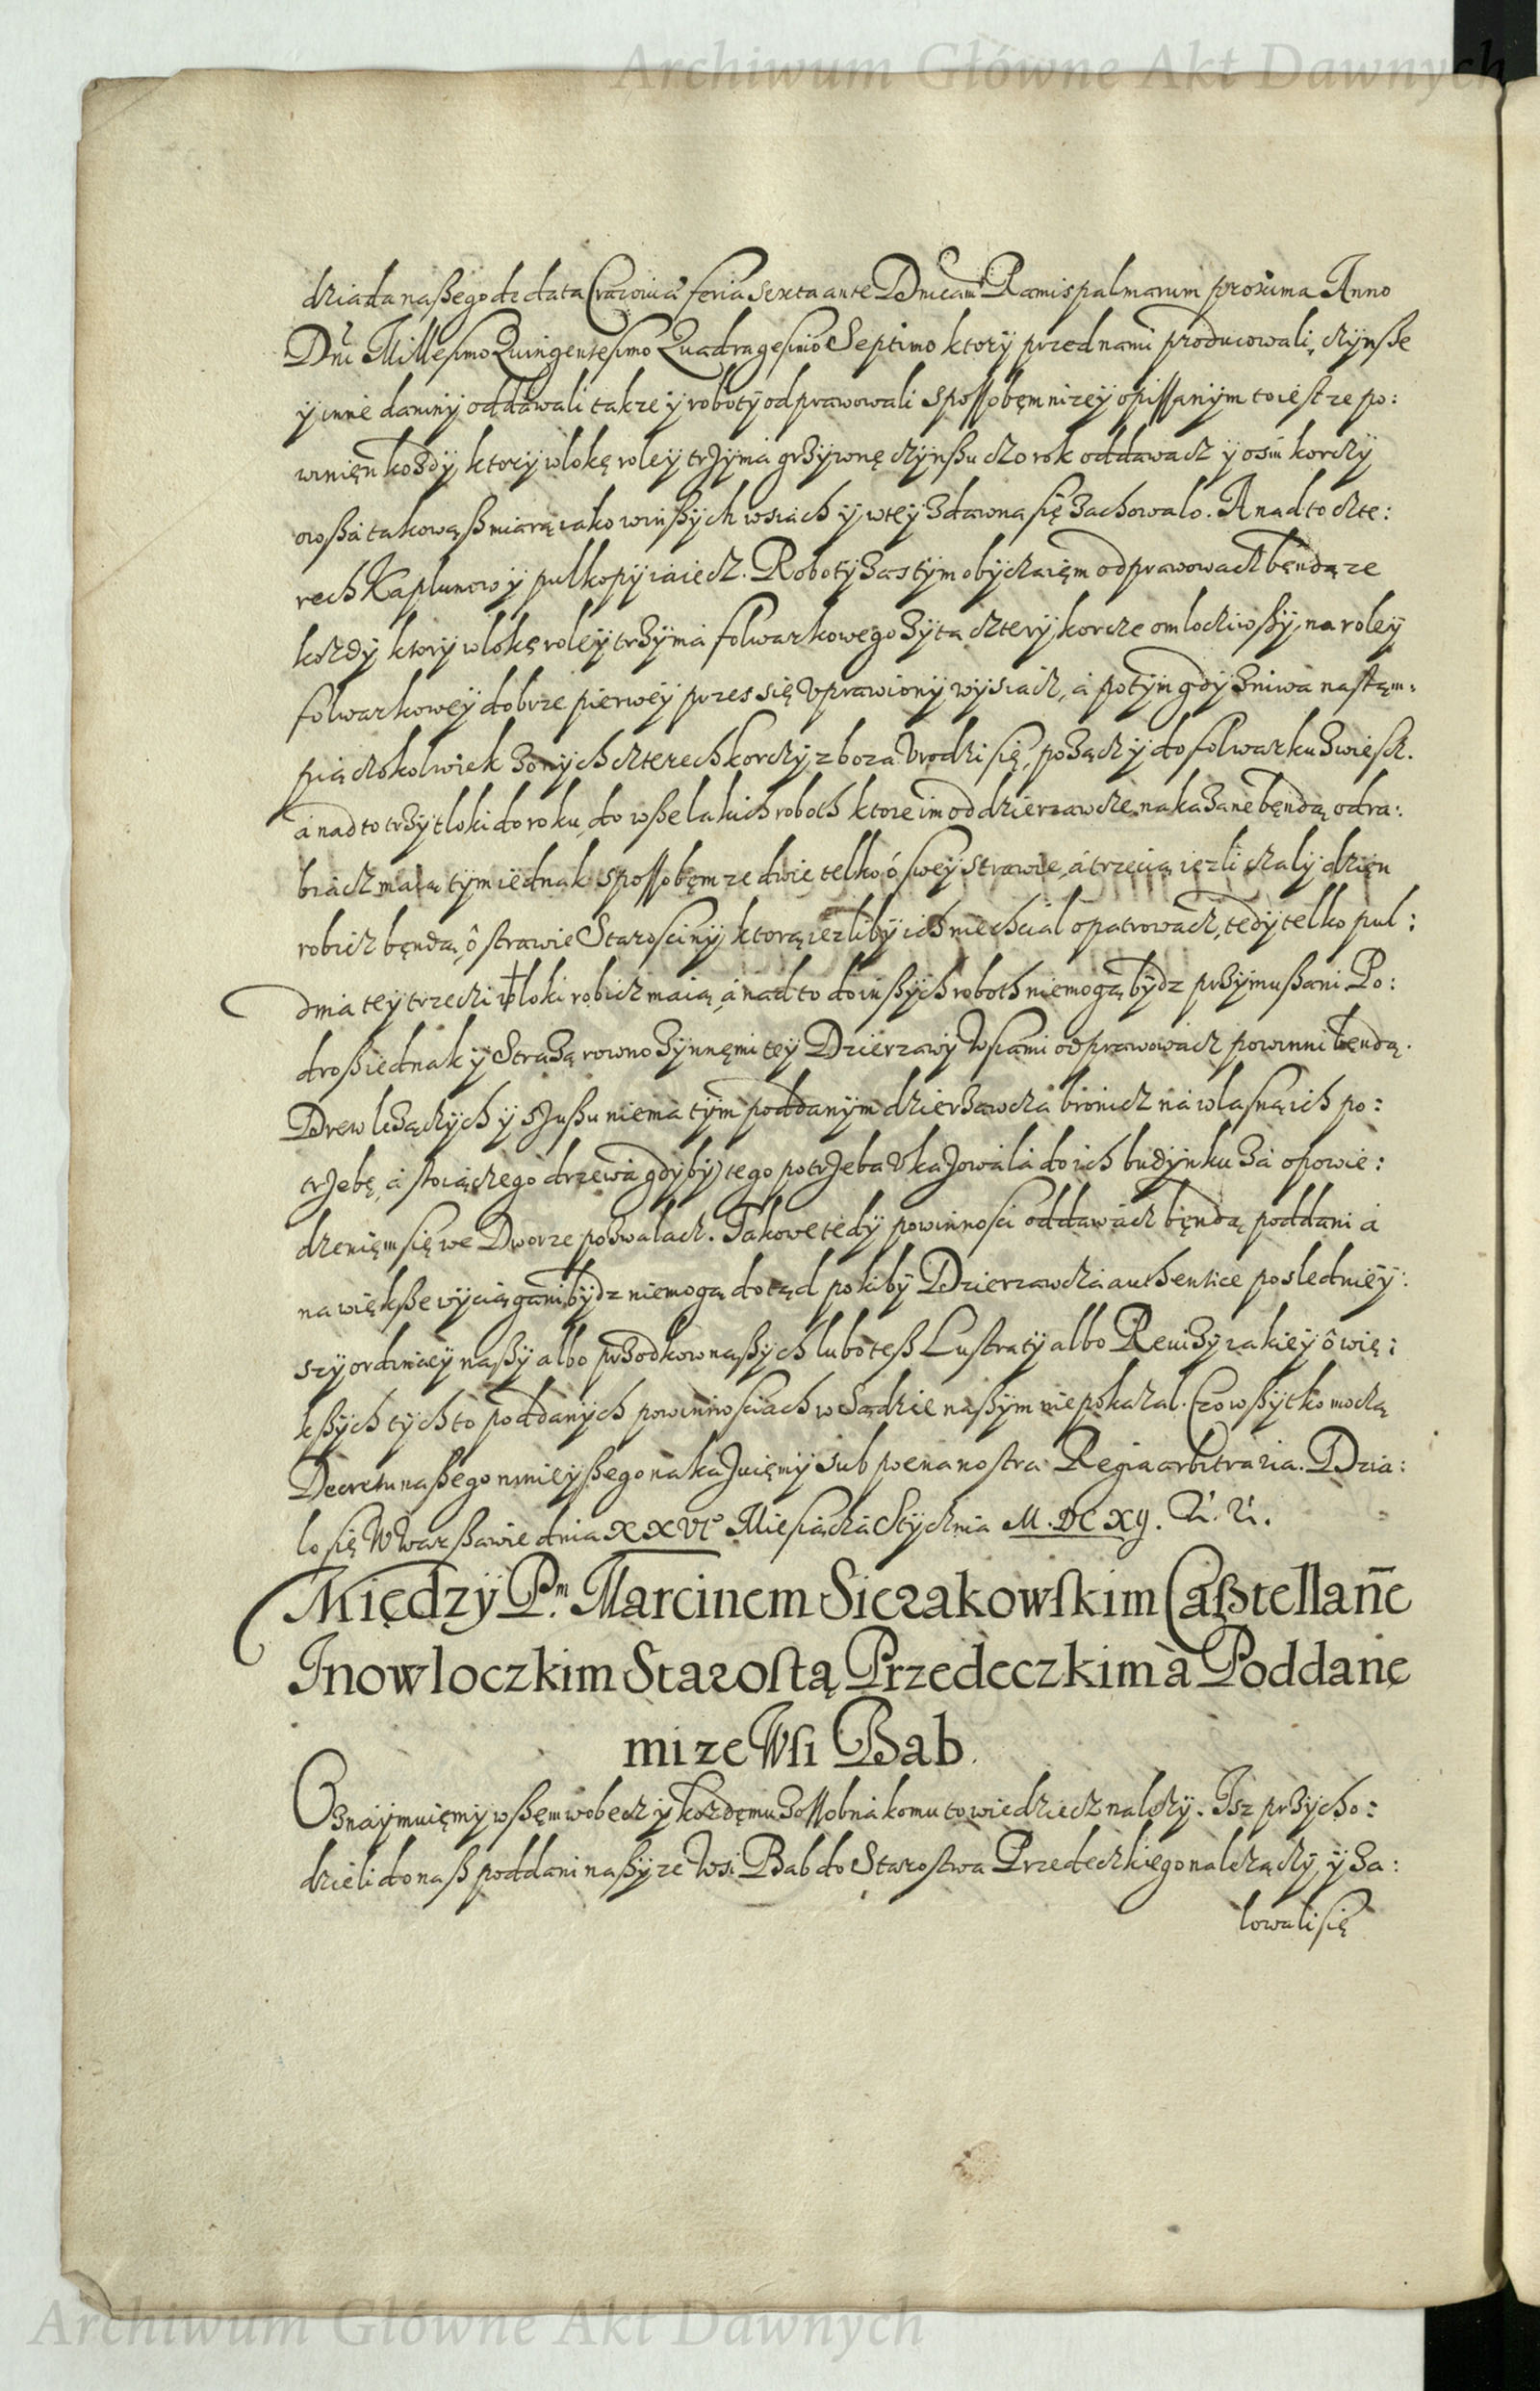 Archiwum Główne Akt Dawnych
dziada naßego de data Cracoviæ feria sexta ante Dnicam Ramispalmarum proxima Anno
Dni Millesimo Quingentesimo Quadragesimo Septimo ktorÿ przed nami producowali, czÿnße
ÿ inne daninÿ oddawali takze ÿ robotÿ odprawowali spossobęm nizeÿ opissanÿm to iest ze po:
winięn kozdÿ, ktorÿ wlokę roleÿ trzÿma grzÿwnę czÿnßu czo rok oddawacz ÿ osm korczÿ
owßa takową ßmiarą iako w inßÿch wsiach ÿ w teÿ zdawna się zachowalo. A nad to czte:
rech Kaplunow ÿ pulkopÿ iaiecz. Robotÿ zas tÿm obÿczaięm odprawowacz będą ze
kozdÿ ktorÿ wlokę roleÿ trzÿma folwarkowego zÿta czterÿ korcze omlocziwßÿ, na roleÿ
folwarkoweÿ dobrze pierweÿ przes się vprawionÿ wÿsiacz, a potÿm gdÿ zniwa nastęm:
pią czokolwiek zonÿch czterech korczÿ zboza vrodzi się, pozącz ÿ do folwarku zwiescz.
a nad to trzÿ tloki do roku, do wßelakich roboth ktore im od dzierzawcze nakazane będą odra:
biacz maią tÿm iednak spossobęm ze dwie telko ó sweÿ strawie, a trzecią iezli czalÿ dzięn
robicz będą, ô strawie Starosczinÿ, ktorą iezlibÿ ich niechcial opatrowacz, tedÿ telko pul:
dnia teÿ trzeczi tloki robicz maią, a nad to do inßÿch roboth niemogą bÿdz przÿmußani Po:
droß iednak ÿ Strazą rowno z ÿnnęmi teÿ Dzierzawÿ Wsiami odprawowacz powinni będą.
Drew lezączÿch ÿ sußu niema tÿm poddanÿm dzierzawcza bronicz na wlasną ich po:
trzebę, a stoiączego drzewa gdÿbÿ tego potrzeba vkazowala do ich budÿnku za opowie:
dzenięm się we Dworze pozwalacz. Takowe tedÿ powinnosci oddawacz będą poddani a
na więkße wÿciągani bÿdz niemogą dotąd pokibÿ Dzierzawcza authentice poslednieÿ:
szÿ ordinaciÿ naßÿ albo przodkow naßÿch lubo teß Lustratÿ albo Reuizÿ iakieÿ ô wię:
kßÿch tÿch to poddanÿch powinnosciach w Sądzie naßÿm niepokazal. Czo wßÿtko moczą
Decretu naßego nineÿßego nakazuięmÿ sub poena nostra Regia arbitraria. Dzia:
lo się W Warßawie dnia XXVIº Miesiącza Stÿcznia M.DC Xij. Ut. Ut.
Międzÿ P.m Marcinem Sierakowskim Caßtellane
Inowloczkim Starostą Przedeczkim a Poddane
mi ze Wsi Bab.
Oznaÿmuięmÿ wßęm wobecz ÿ kozdęmu zossobna komu to wiedziecz nalezÿ. Isz przÿcho:
dzieli do naß poddani naßÿ ze Wsi Bab do Starostwa Przedeczkiego nalezączÿ, ÿ za:
lowali się
Archiwum Główne Akt Dawnych